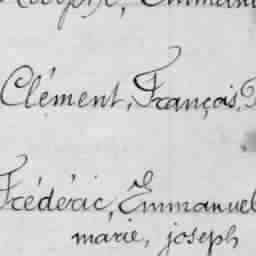 Clément, François,
Frédéric, Emmanuel
marie, joseph